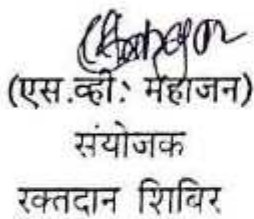 (एस.व्ही. महाजन)
संयोजक
रक्तदान शिबिर